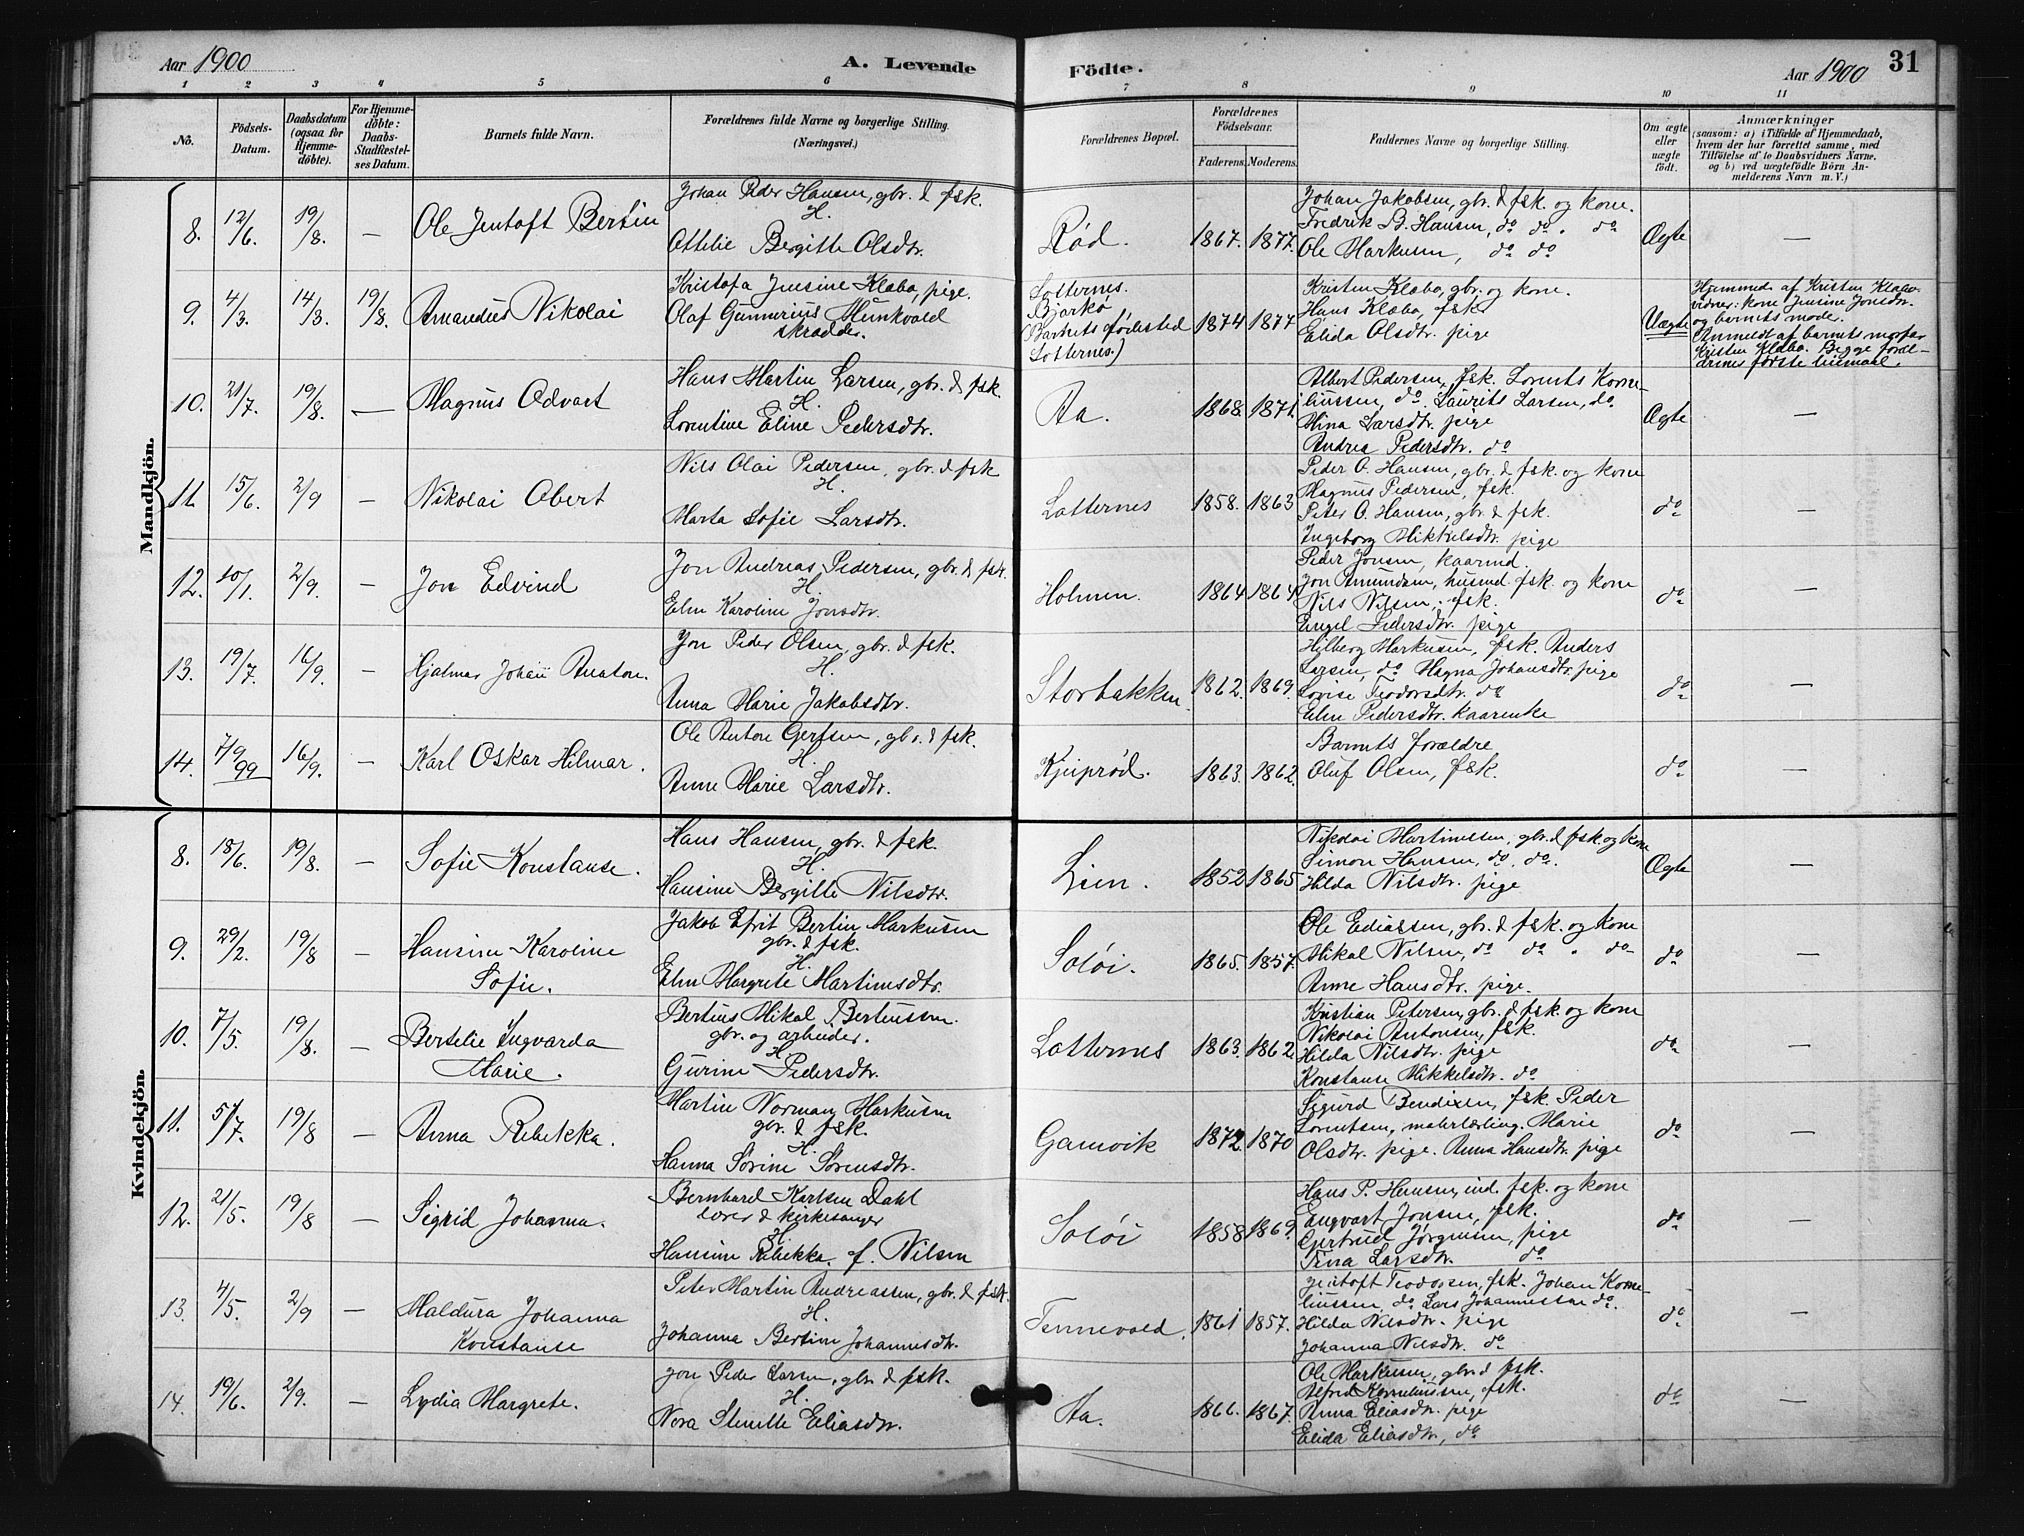 Aar 1900
A. Levende
Födte.
Aar 1900
31
1 2 3 4 5 6 7 8 9 10 11
No.
Födsels-
Datum.
Daabsdatum
(ogsaa for
Hjemme-
döbte).
For Hjemme-
döbte:
Daabs-
Stadfæstel-
ses Datum.
Barnets fulde Navn.
Forældrenes fulde Navne og borgerlige Stilling.
(Næringsvei.)
Forældrenes Bopæl.
Forældrenes
Födselsaar.
Faderens. Moderens.
Faddernes Navne og borgerlige Stilling.
Om ægte
eller
uægte
födt.
Anmærkninger
(saasom: a) i Tilfælde af Hjemmedaab,
hvem der har forrettet samme, med
Tilföielse af to Daabsvidners Navne,
og b) ved uægtefödte Börn An-
melderens Navn m. V.)
Mandkjön.
8. 12/6. 19/8. — Ole Jentoft Bertin
Johan Peder Hansen, gbr. & fsk.
H.
Othilie Bergitte Olsdtr.
Rød. 1867. 1877.
Johan Jakobsen, gbr. & fsk. og kone.
Fredrik B. Hansen, do do. do
Ole Markusen, do do
Ægte —
9. 4/3. 14/3. 19/8. Amandus Nikolai
Kristofa Jensine Klæbo, pige.
Olaf Gunnerius Munkvold
skrædder.
Lotternes.
Bjarkø
(Barnets fødested
Lotternes.)
1874 1877
Kristen Klæbo, gbr. og kone.
Hans Klæbo, fsk
Elida Olsdtr. pige
Uægte
Hjemmed. af Kristen Klæbo.
vidner: kone Jensine Jonsdtr.
og barnets moder.
Anmeldt af barnets morfar
Kristen Klæbo. Begge foræl-
drenes første leiermaal.
10. 21/7. 19/8. — Magnus Edvart
Hans Martin Larsen, gbr. & fsk.
H.
Lorentine Eline Pedersdtr.
Aa. 1868. 1871.
Albert Pedersen, fsk. Lorents Korne-
liussen, do Laurits Larsen, do.
Mina Larsdtr. pige
Andrea Pedersdtr. do
Ægte —
11. 15/6. 2/9 — Nikolai Obert
Nils Olai Pedersen, gbr. & fsk
H.
Marta Sofie Larsdtr.
Lotternes 1858. 1863
Peder O. Hansen, gbr. & fsk. og kone
Magnus Pedersen, fsk.
Peter O. Hansen, gbr. & fsk.
Ingeborg Mikkelsdtr. pige
do —
12. 20/1. 2/9. — Jon Edvind
Jon Andreas Pedersen, gbr. & fsk.
H.
Elen Karoline Jonsdtr.
Holmen. 1864 1864
Peder Jonsen, kaarmd.
Jon Amundsen, husmd. fsk. og kone
Nils Nilsen, fsk.
Engel Pedersdtr. pige
do —
13. 19/7. 16/9. — Hjalmar Johan Anaton.
Jon Peder Olsen, gbr. & fsk.
H.
Anna Marie Jakobsdtr.
Storbakken. 1862. 1869.
Hilberg Markusen, fsk. Anders
Larsen, do Magna Johansdtr. pige
Lovise Teodorsdtr. do
Elen Pedersdtr. kaarenke
do —
14. 7/9 99 16/9. — Karl Oskar Hilmar.
Ole Anton Gerfsen, gbr. & fsk.
H.
Anne Marie Larsdtr.
Kjeiprød. 1863. 1862.
Barnets forældre
Oluf Olsen, fsk.
do —
Kvindekjön.
8. 18/6. 19/8. — Sofie Konstanse.
Hans Hansen, gbr. & fsk.
H.
Hansine Bergitte Nilsdtr.
Lien. 1852 1865
Nikolai Martinussen, gbr. & fsk. og kone
Simon Hansen, do. do.
Hilda Nilsdtr. pige
Ægte —
9. 29/2. 19/8 — Hansine Karoline
Sofie.
Jakob Efrit Bertin Markusen
gbr. & fsk.
H.
Elen Margrete Martinsdtr.
Soløi. 1865. 1857.
Ole Eliassen, gbr. & fsk. og kone
Mikal Nilsen, do do. do
Anne Hansdtr. pige.
do —
10. 7/5. 19/8. — Berselie Ingvarda
Marie.
Bertius Mikal Berteussen.
gbr. og arbeider.
H
Gurine Pedersdtr.
Lotternes 1863. 1862
Kristian Petersen, gbr. & fsk. og kone
Nikolai Antonsen, fsk.
Hilda Nilsdtr. pige
Konstanse Mikkelsdtr. do
do —
11. 5/7. 19/8 — Anna Rebekka.
Martin Norman Markusen
gbr. & fsk.
H.
Hanna Sørine Sørensdtr.
Gamvik 1872. 1870
Sigurd Bendixen, fsk. Peder
Lorentsen, malerlærling. Marie
Olsdtr. pige. Anna Hansdtr. pige
do —
12. 21/5. 19/8 — Sigrid Johanna.
Bernhard Karlsen Dahl
lærer & kirkesanger
H.
Hansine Rebekka f. Nilsen
Soløi 1858 1869.
Hans P. Hansen, ind. fsk. og kone
Engvart Jonsen, fsk.
Gjertrud Jørgensen, pige
Trina Larsdtr. do
do —
13. 4/5. 2/9 — Haldura Johanna
Konstanse
Peter Martin Andreassen, gbr. & fsk.
H.
Johanna Bertine Johannesdtr.
Tennevold. 1861 1857.
Jentoft Teodorsen, fsk. Johan Korne-
liussen, do. Lars Johannessen do.
Hilda Nilsdtr. pige
Johanna Nilsdtr. do
do —
14. 19/6. 2/9. — Lydia Margrete.
Jon Peder Larsen, gbr. & fsk.
H.
Nora Eliasdtr.
Aa. 1866. 1867.
Ole Markusen, gbr. & fsk.
Alfred Korneliussen, fsk.
Anna Eliasdtr. pige
Elida Eliasdtr, do
do —